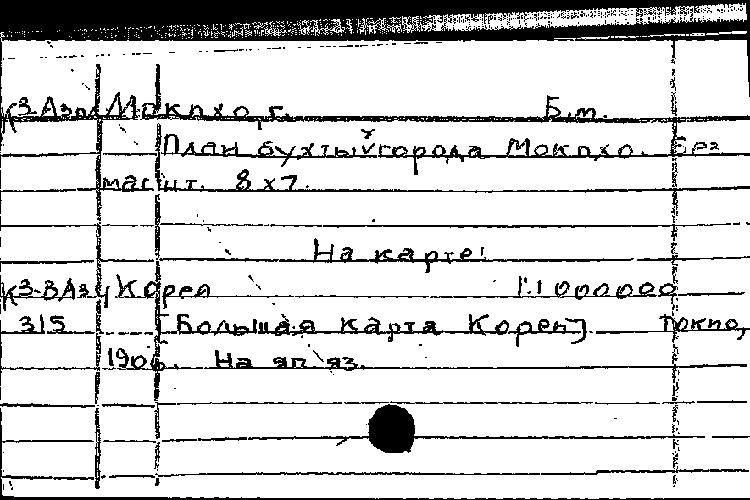 К3-Аз Мокпхо, г. Б.м.
План бухты и города Мокпхо. Без
масшт. 8х7.
На карте:
К3-ВАз Корея 1:1000000
315 [Большая карта Кореи] Токио,
1906. На яп. яз.